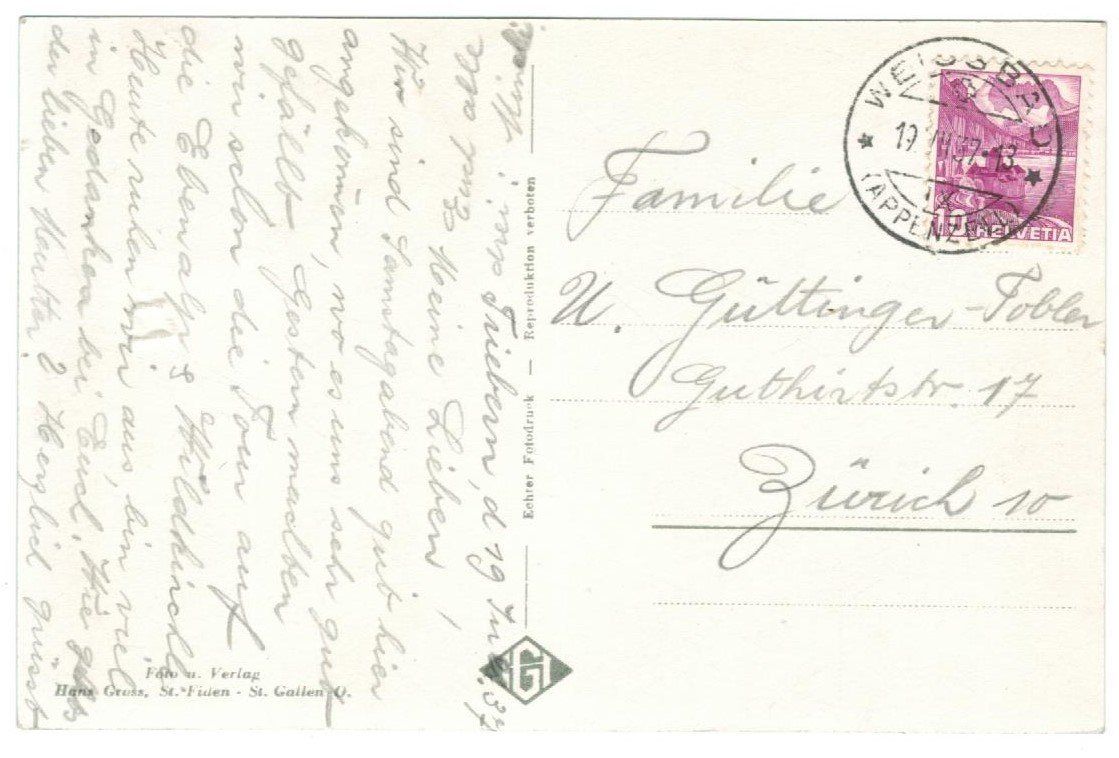 Triebern, d 19 Juli. 37
Meine Lieben!
Wir sind Samstagabend gut hier
angekommen, wo es uns sehr gut
gefällt. Gestern machten
wir schon die Tour auf
die Ebenalp & Wildkirchli
Heute ruhen wir aus, bin viel
in Gedanken bei Euch. Wie gehts
der lieben Mutter? Herzlich grüsst
Echter Fotodruck — Reproduktion verboten
Foto u. Verlag
Hans Gross, St. Fiden - St. Gallen O.
HG
WEISSBAD
(APPENZELL)
19. VII. 37-13
10 HELVETIA
Familie
U. Güttinger-Tobler
Guthirtstr. 17
Zürich 10